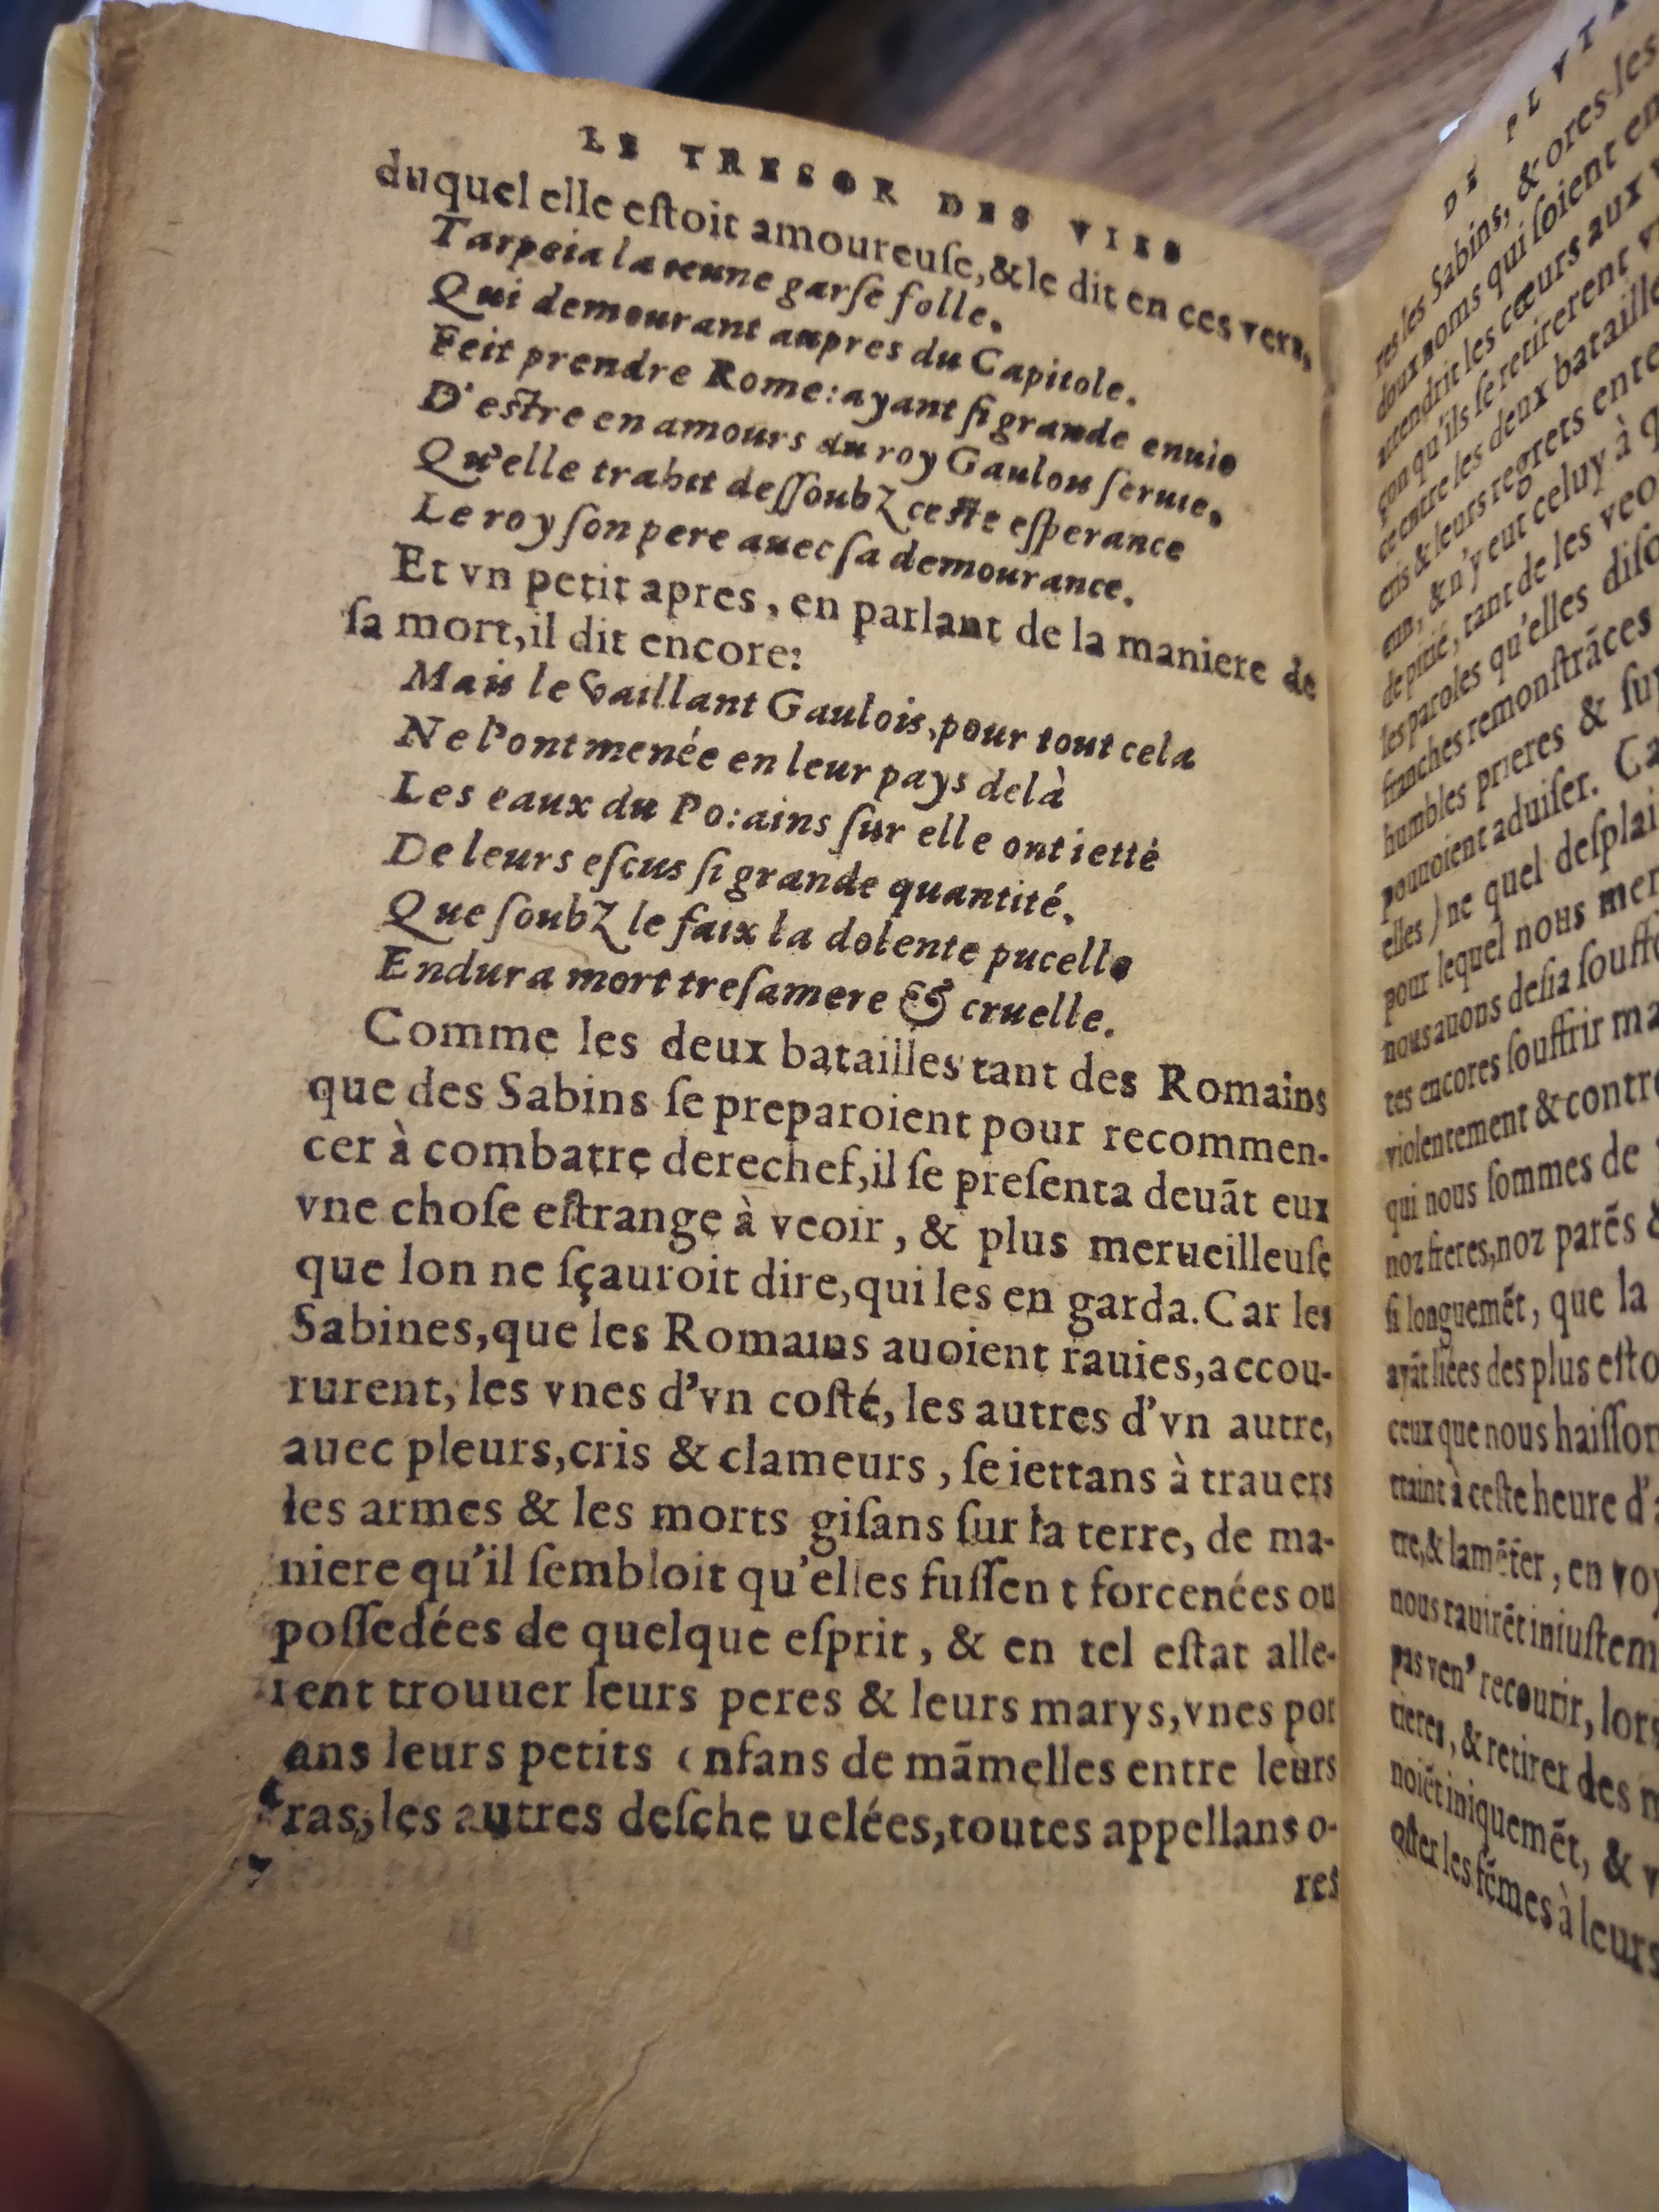 LE TRESOR DES VIES
duquel elle eſtoit amoureuſe,&le dit en ces vers,
Tarpeia la ieune garſe folle,
Qui demourant aupres du Capitole,
Feit prendre Rome:ayant ſi grande enuie
D'eſtre en amours du roy Gaulou ſeruie,
Qu'elle trahit deſſoubz ceſte eſperance
Le roy ſon pere auec ſa demourance.
Et vn petit apres, en parlant de la maniere de
ſa mort,il dit encore:
Mais le vaillant Gaulois,pour tout cela
Ne l'ont menée en leur pays delà
Les eaux du Po:ains ſur elle ont ietté
De leurs eſcus ſi grande quantité,
Que ſoubz le faix la dolente pucelle
Endura mort treſamere & cruelle.
Comme les deux batailles tant des Romains
que des Sabins ſe preparoient pour recommen-
cer à combatre derechef,il ſe preſenta deuāt eux
vne choſe eſtrange à veoir, & plus merueilleuſe
que lon ne ſçauroit dire,qui les en garda.Car les
Sabines,que les Romains auoient rauies,accou-
rurent, les vnes d'vn coſté, les autres d'vn autre,
auec pleurs,cris & clameurs, ſe iettans à trauers
les armes & les morts giſans ſur la terre, de ma-
niere qu'il ſembloit qu'elles fuſſen t forcenées ou
poſſedées de quelque eſprit, & en tel eſtat alle-
rent trouuer leurs peres & leurs marys,vnes por
ans leurs petits enfans de māmelles entre leurs
ras,les autres deſche uelées,toutes appellans o-
res
DE PLVTA
res les Sabins, & ores les
doux noms qui ſoient en
attendrit les cœurs aux
çon qu'ils ſe retirerent
ce entre les deux bataille
cris & leurs regrets ente
cun, & n'y eut celuy à q
de pitié, tant de les veo
les paroles qu'elles diſo
franches remonſtrāces
humbles prieres & ſup
pouuoient aduiſer. Ca
elles) ne quel deſplai
pour lequel nous mer
nous auons deſia ſouffe
tes encores ſouffrir ma
violentement & contre
qui nous ſommes de
noz freres,noz parēs &
ſi longuemēt, que la
ayāt liées des plus eſto
ceux que nous haiſſon
traint à ceſte heure d'a
tre,& lamēter, en voy
nous rauirēt iniuſtem
pas ven' recourir, lors
tieres, & retirer des m
noiēt iniquemēt, & v
oſter les fēmes à leurs